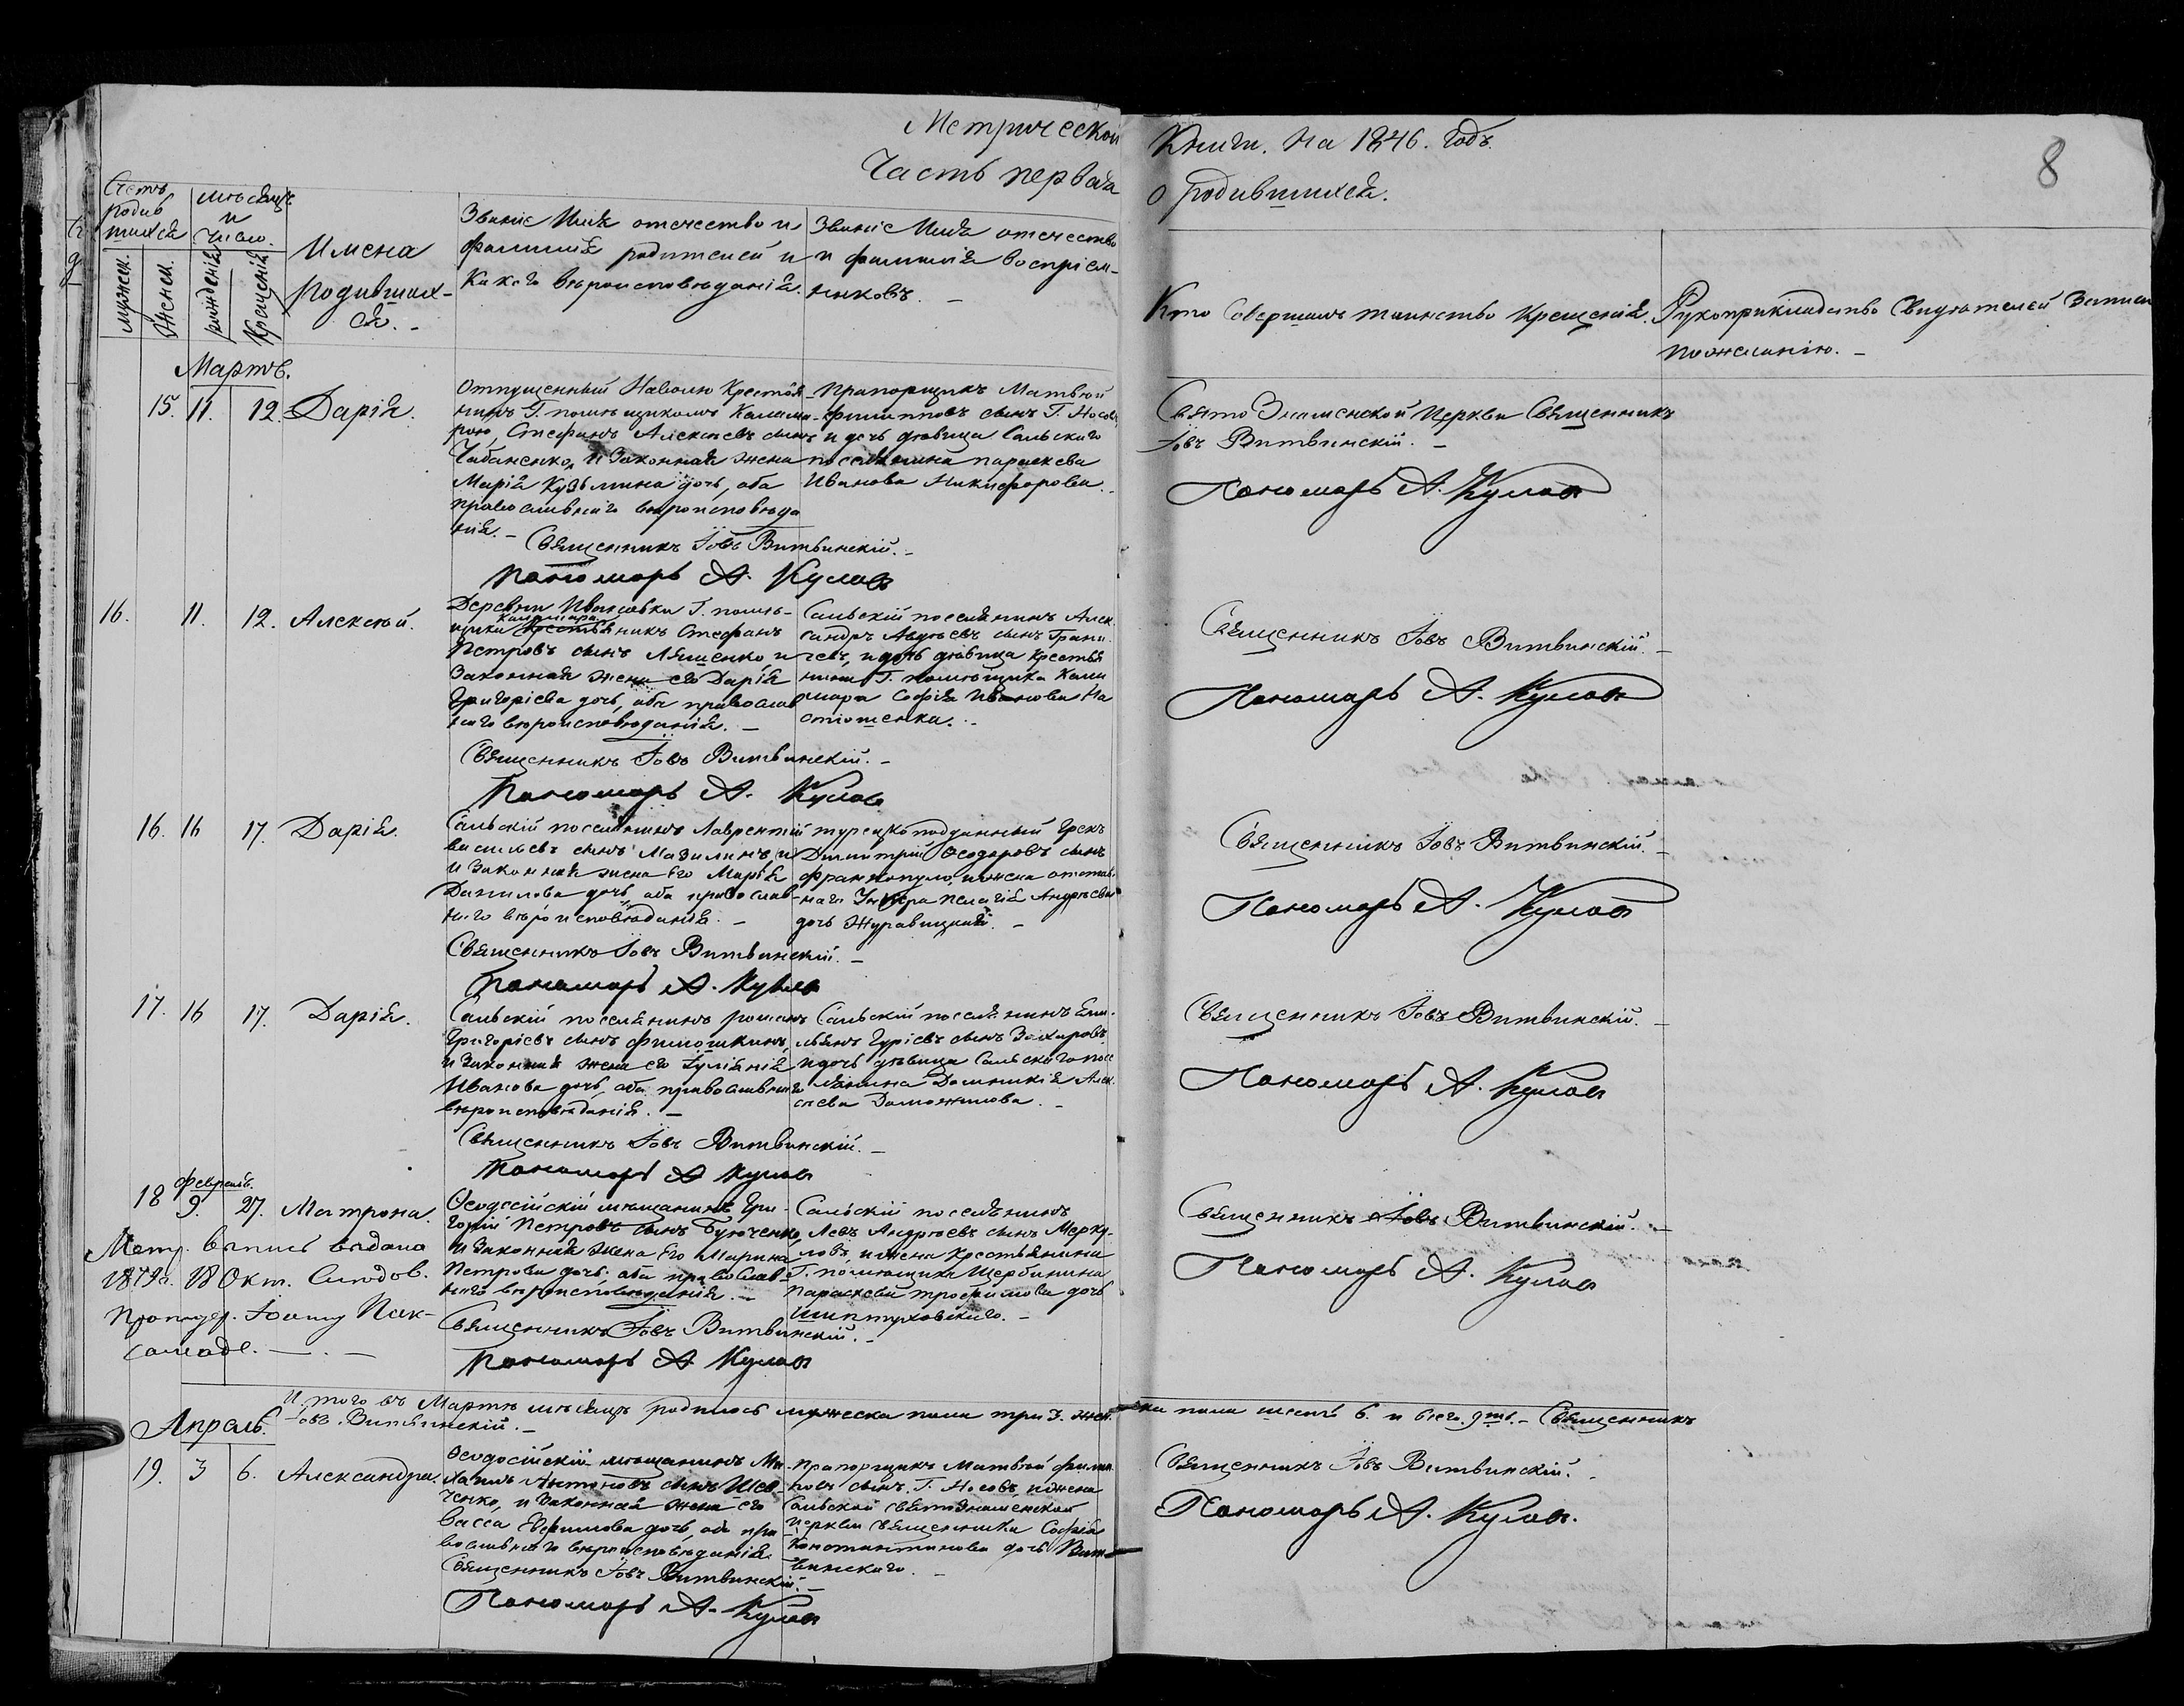 Метрической Книги. На 1846. годъ.
8
Часть первая о родившихся.
Счетъ родив шихся
мѣсяцъ и число.
мужеск.
женск.
рожденія
Крещенія
Имена родившихся.
Званіе Имя отечество и фамилія родителей и Какого вѣроисповѣданія.
Званіе Имя отечество и фамилія воспріем-никовъ.
Кто Совершалъ таинство Крещенія.
Рукоприкладство Свидѣтелей записи по желанію.
Мартъ.
15. 11. 12. Дарія.
Отпущенный На волю Крестья
нинъ Г. помѣщикомъ
Стефанъ Алексѣевъ сынъ
Чабаненко, и Законная жена
Марія Кузьмина дочь, оба
православнаго вѣроисповѣда
нія.
Священникъ Іовъ Витвинскій.
Пономарь А. Кулов
Прапорщикъ Матвѣй
филипповъ сынъ Г. Носовъ
и дочь дѣвица Сальскаго
поселянина параскева
Иванова Никифорова.
Свято Знаменской Церкви Священникъ
Іовъ Витвинскій.
Пономарь А. Кулов
16. 11. 12. Алексѣй.
Деревни Ивановки Г. помѣ-
щика Стефанъ
Петровъ сынъ Ляшенко, и
Законная жена его Дарія
Григоріева дочь, оба православ
наго вѣроисповѣданія.
Священникъ Іовъ Витвинскій.
Пономарь А. Кулов
Сальскій поселянинъ Алек
сандръ Авдѣевъ сынъ
и дочь дѣвица Крестья
нина Г. помѣщика
Софія Иванова На
стюшенка.
Священникъ Іовъ Витвинскій.
Пономарь А. Кулов
16. 16 17. Дарія.
Сальскій поселянинъ Лаврентій
васильевъ сынъ Мазилинъ, и
и Законная жена Его Марія
Данилова дочь, оба православ-
наго вѣроисповѣданія.
Священникъ Іовъ Витвинскій.
Пономарь А. Кулов
турецко подданный Грекъ
Димитрій Ѳеодоровъ сынъ
франкопуло, и жена отстав-
наго Унтера пелагія Андреева
дочь Журавицкая.
Священникъ Іовъ Витвинскій.
Пономарь А. Кулов
17. 16 17. Дарія.
Сальскій поселянинъ романъ
Григоріевъ сынъ филюшкинъ,
и Законная жена его Іуліанія
Иванова дочь, оба православнаго
вѣроисповѣданія.
Священникъ Іовъ Витвинскій.
Пономарь А Кулов
Сальскій поселянинъ Еми-
льянъ Гуріевъ сынъ Захаровъ,
и дочь дѣвица Сальскаго посе
лянина Домникія Алек
сѣева Доможилова.
Священникъ Іовъ Витвинскій.
Пономарь А. Кулов
февраль.
18 9. 27. Матрона.
Метр. выпись выдана
1879г. 18 Окт.
Ѳеодосійскій мѣщанинъ Гри-
горій Петровъ сынъ
и Законная жена Его Марина
Петрова дочь, оба православ-
наго вѣроисповѣданія.
Священникъ Іовъ Витвинскій.
Пономарь А. Кулов
Сальскій поселянинъ
Левъ Андреевъ сынъ Мерку-
ловъ, и жена Крестьянина
Г. помѣщика Щербинина
параскева трофимова дочь
Священникъ Іовъ Витвинскій.
Пономарь А. Кулов
Итого въ Мартѣ мѣсяцѣ родилось мужеска пола три 3. женска пола шесть 6. и всего. 9ть. - Священникъ
Іовъ Витвинскій.
Апрель.
19. 3 6. Александра.
Ѳеодосійскій мѣщанинъ Ми-
хаилъ Антоновъ сынъ Шев-
ченко, и Законная жена его
васса Ефимова дочь, оба пра-
вославнаго вѣроисповѣданія.
Священникъ Іовъ Витвинскій.
Пономарь А. Кулов
прапорщикъ Матвѣй филип
повъ сынъ, Г. Носовъ, и жена
Сальской святознаменской
церкви священника Софія
Константинова дочь Вит-
винскаго.
Священникъ Іовъ Витвинскій.
Пономарь А. Кулов.